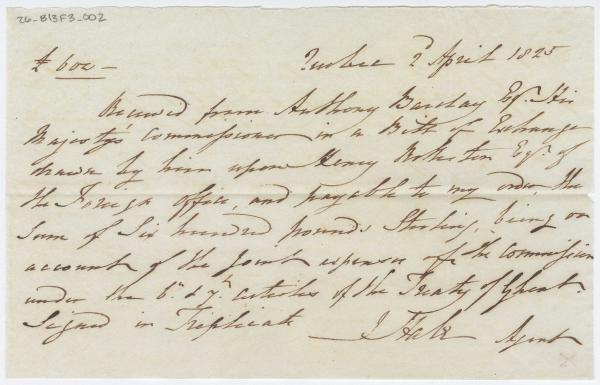 26-B13F3-002
£ 600 - Quebec 2d April 1825
Received from Anthony Barclay Esqr. His
Majesty's Commissioner in a Bill of Exchange
drawn by him upon Henry Esqr. of
the Foreign office, and payable to my order, the
Sum of Six hundred pounds Sterling, being on
account of the Joint expenses of the Commission
under the 6th & 7th articles of the Treaty of Ghent.
Signed in Triplicate J Hale Agent